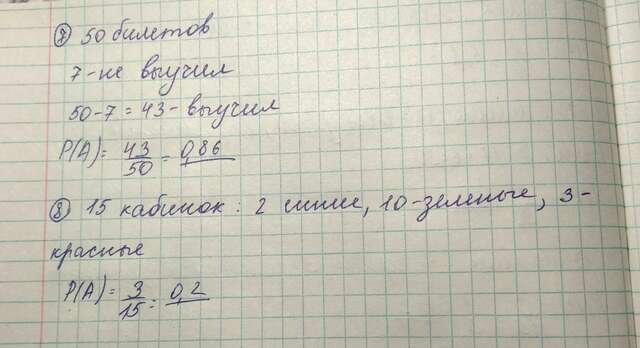 ⑦ 50 билетов
7-не выучил
50-7=43- выучил
P(A)= 43/50 = 0,86
⑧ 15 кабинок: 2 синие, 10-зеленые, 3-
красные
P(A)= 3/15 = 0,2